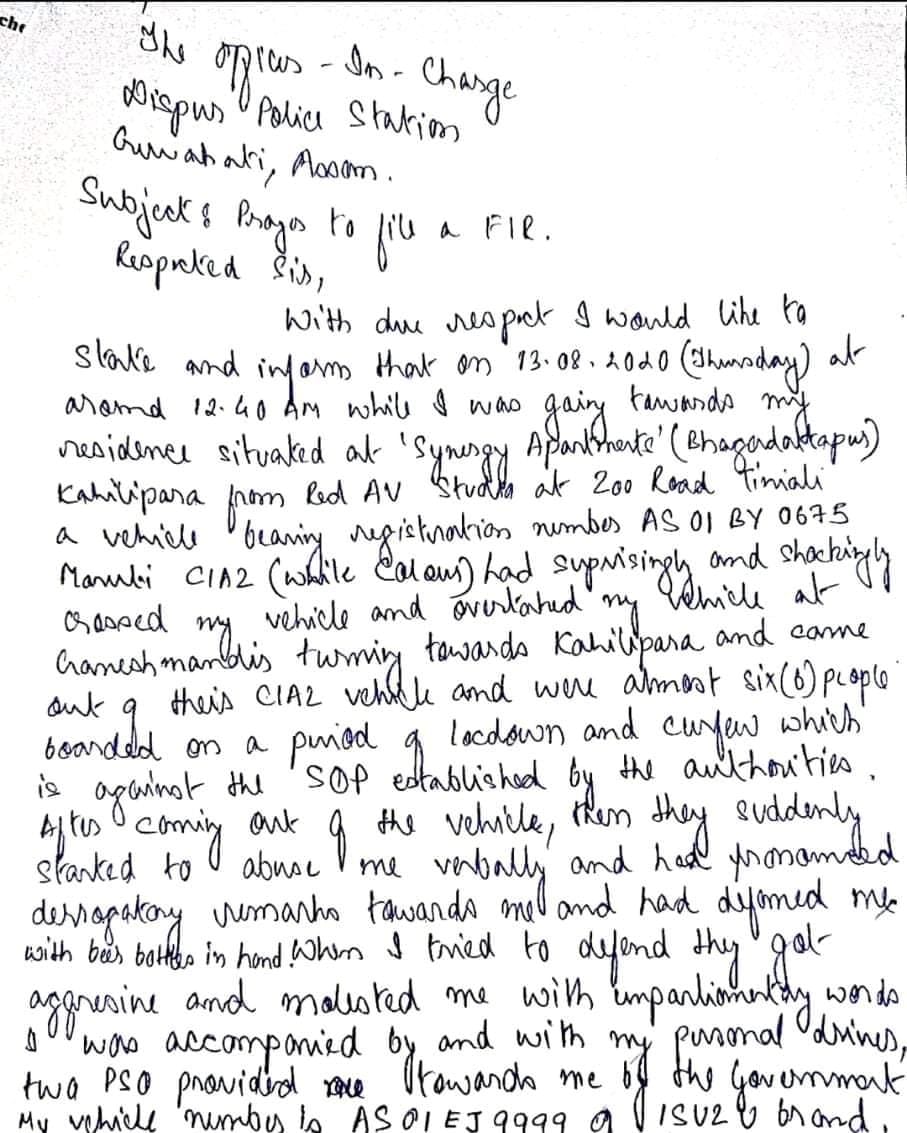 The officer - In - Charge
Dispur Police Station
Guwahati, Assam.
Subject : Prayer to file a FIR.
Respected Sir,
With due respect I would like to
state and inform that on 13.08.2020 (Thursday) at
around 12.40 AM while I was going towards my
residence situated at 'Synergy Apartments' (Bhagadattapur)
Kahilipara from Red AV Studio at Zoo Road Tiniali
a vehicle bearing registration number AS 01 BY 0675
Maruti CIAZ (White Colour) had suprisingly and shockingly
crossed my vehicle and overtaked my vehicle at
Ganeshmandir turning towards Kahilipara and came
out of their CIAZ vehicle and were almost six (6) people
boarded on a period of locdown and curfew which
is against the SOP established by the authorities.
After coming out of the vehicle, then they suddenly
started to abuse me verbally and had pronounded
derrogatory remarks towards me and had defomed me
with beer bottles in hand. When I tried to defend they got
aggresive and molested me with unparliamentary words
I was accompanied by and with my personal driver,
two PSO provided towards me by the Government
My vehicle number is AS 01 EJ 9999 of ISUZU brand.